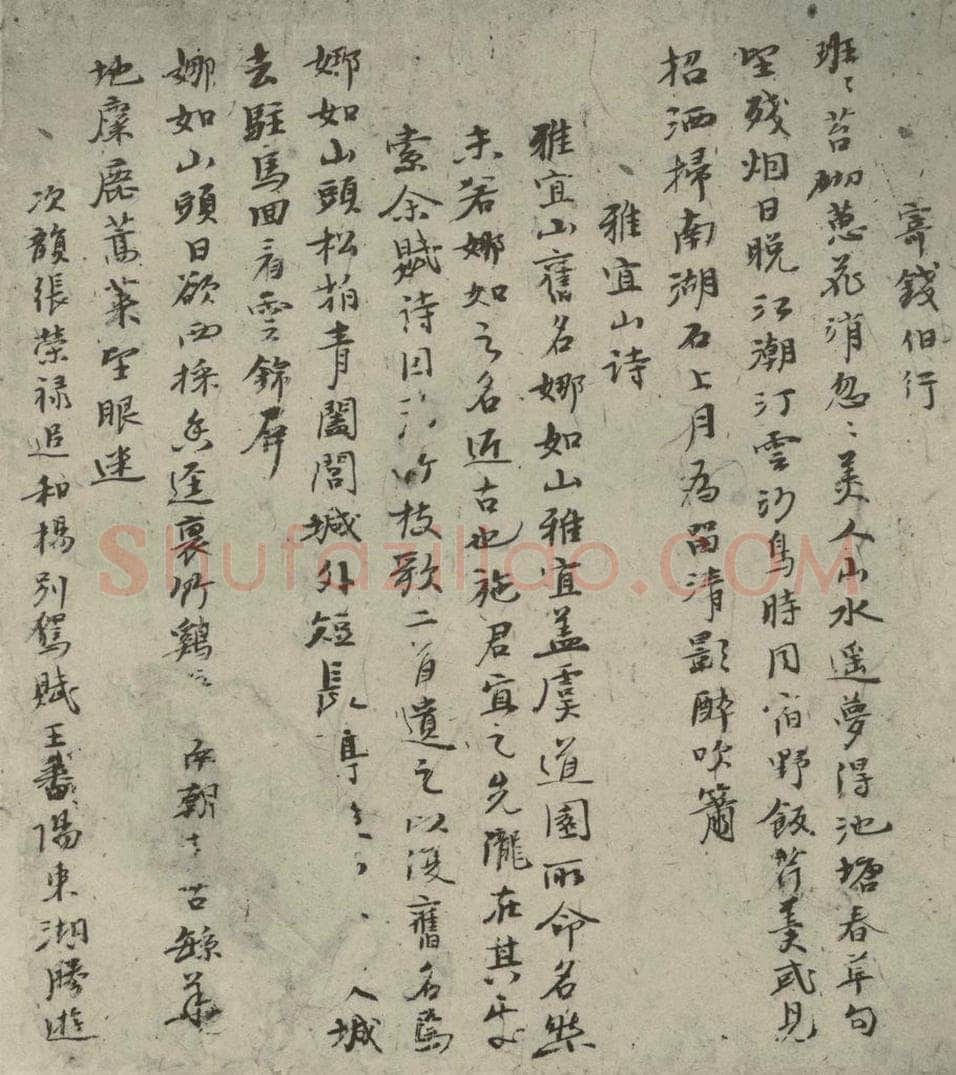 寄錢伯行
班〻苔砌蔥花消忽〻美人山水遥夢得池塘春草句
望殘烟日晚江潮汀雲沙鳥時同宿野飯芹羹或見
招洒掃南湖石上月為留清影醉吹簫
雅宜山诗
雅宜山舊名娜如山雅宜盖虞道園所命名然
未若娜如之名近古也施君宜之先隴在其
索余賦诗因 竹枝歌二首遺之以復舊名焉
娜如山頭松柏青闔閭城外短長亭 入城
去駐馬回看雲錦屏
娜如山頭日欲西採 逕裏竹鷄 朝 苔
地麋鹿蒿萊望眼迷
次韻張榮祿追和楊别駕賦王番陽東湖勝遊
Shufaziliao.COM